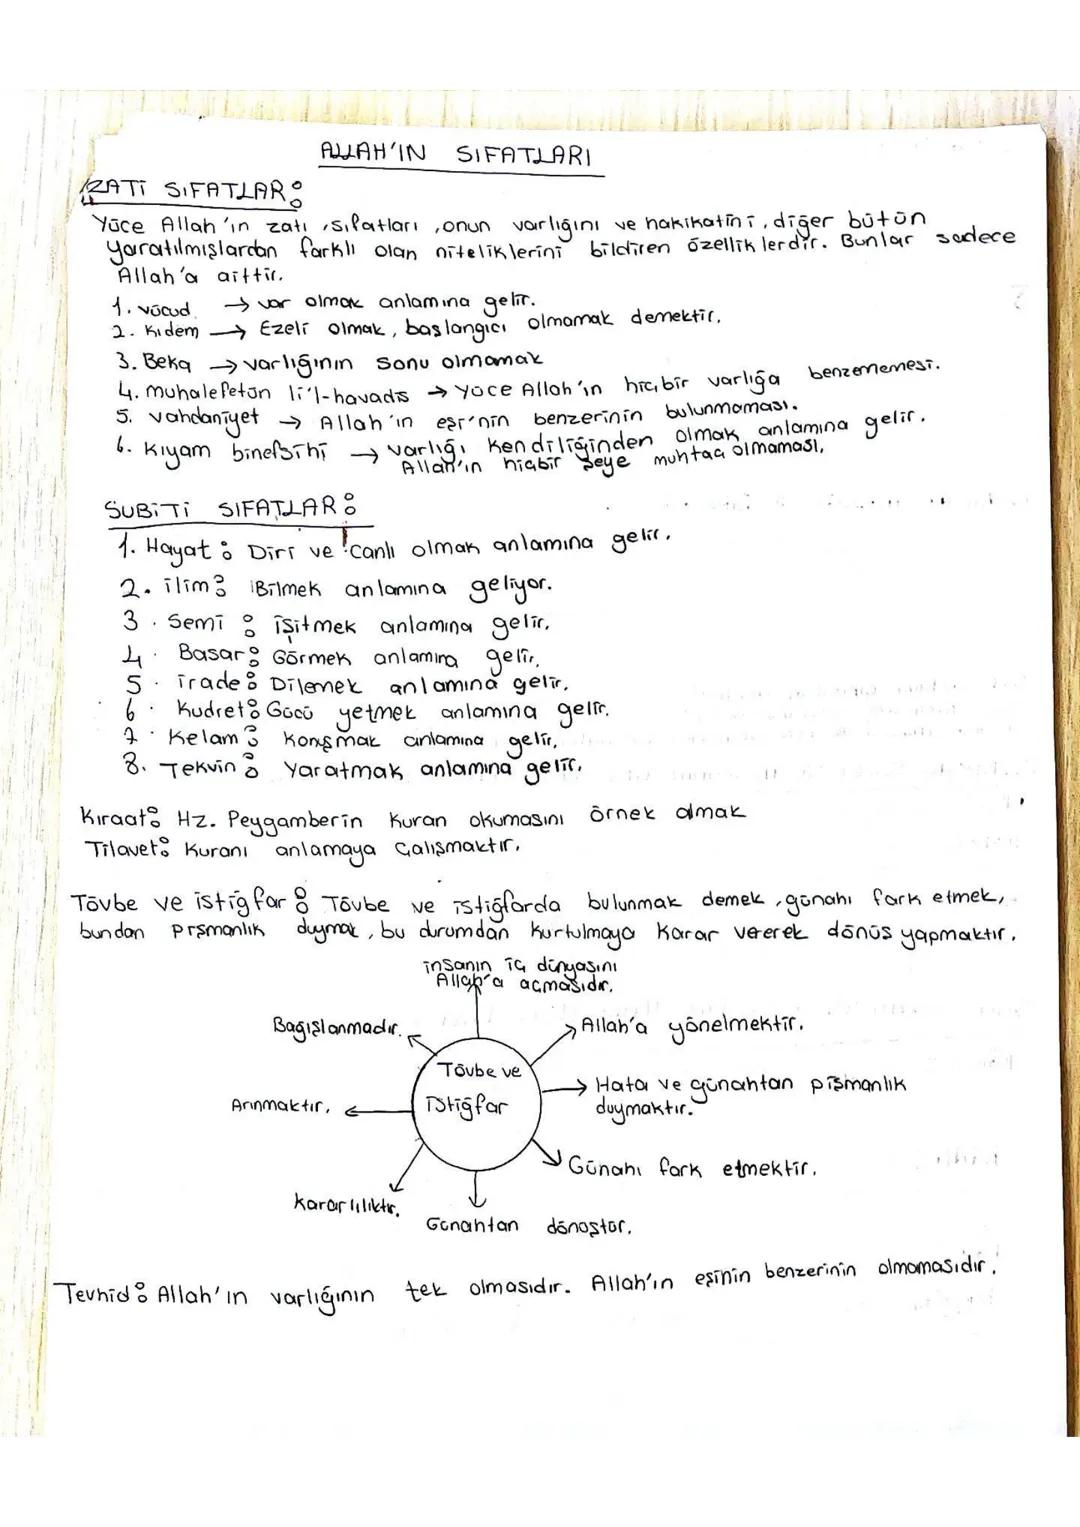 ALLAH'IN SIFATLARI
ZATİ SIFATLAR:
Yüce Allah'ın zatı, sıfatları, onun varlığını ve hakikatini, diğer bütün
yaratılmışlardan farklı olan niteliklerini bildiren özelliklerdir. Bunlar sadece
Allah'a aittir.
1. vücud → var olmak anlamına gelir.
2. Kıdem → Ezeli olmak, başlangıcı olmamak demektir.
3. Beka → varlığının sonu olmamak
4. muhalefetün li'l-havadis → Yüce Allah'ın hiçbir varlığa benzememesi.
5. vahdaniyet → Allah'ın eşi'nin benzerinin bulunmaması.
6. Kıyam binefsihi → varlığı kendiliğinden olmak anlamına gelir.
Allah'ın hiçbir şeye muhtaç olmaması.
SUBİTİ SIFATLAR:
1. Hayat: Diri ve canlı olmak anlamına gelir.
2. ilim: Bilmek anlamına geliyor.
3. Semi: işitmek anlamına gelir.
4. Basar: Görmek anlamına gelir.
5. irade: Dilemek anlamına gelir.
6. Kudret: Gücü yetmek anlamına gelir.
7. Kelam: Konuşmak anlamına gelir.
8. Tekvin: Yaratmak anlamına gelir.
Kıraat: Hz. Peygamberin Kuran okumasını örnek almak
Tilavet: Kuranı anlamaya çalışmaktır.
Tövbe ve istiğfar: Tövbe ve istiğfarda bulunmak demek, günahı fark etmek,
bundan pişmanlık duymak, bu durumdan kurtulmaya karar vererek dönüş yapmaktır.
insanın iç dünyasını
Allah'a açmasıdır.
Bağışlanmadır.
Allah'a yönelmektir.
Tövbe ve
istiğfar
Hata ve günahtan pişmanlık
duymaktır.
Arınmaktır.
Günahı fark etmektir.
Kararlılıktır.
Günahtan dönüştür.
Tevhid: Allah'ın varlığının tek olmasıdır. Allah'ın eşinin benzerinin olmamasıdır.